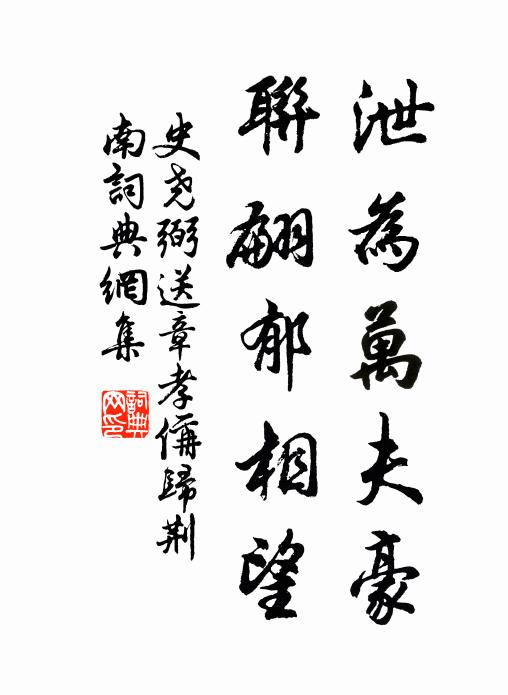 泄為萬夫豪
聯翩郁相望
史尧弼送章孝偁歸荆
南詞典網集
詞典网印